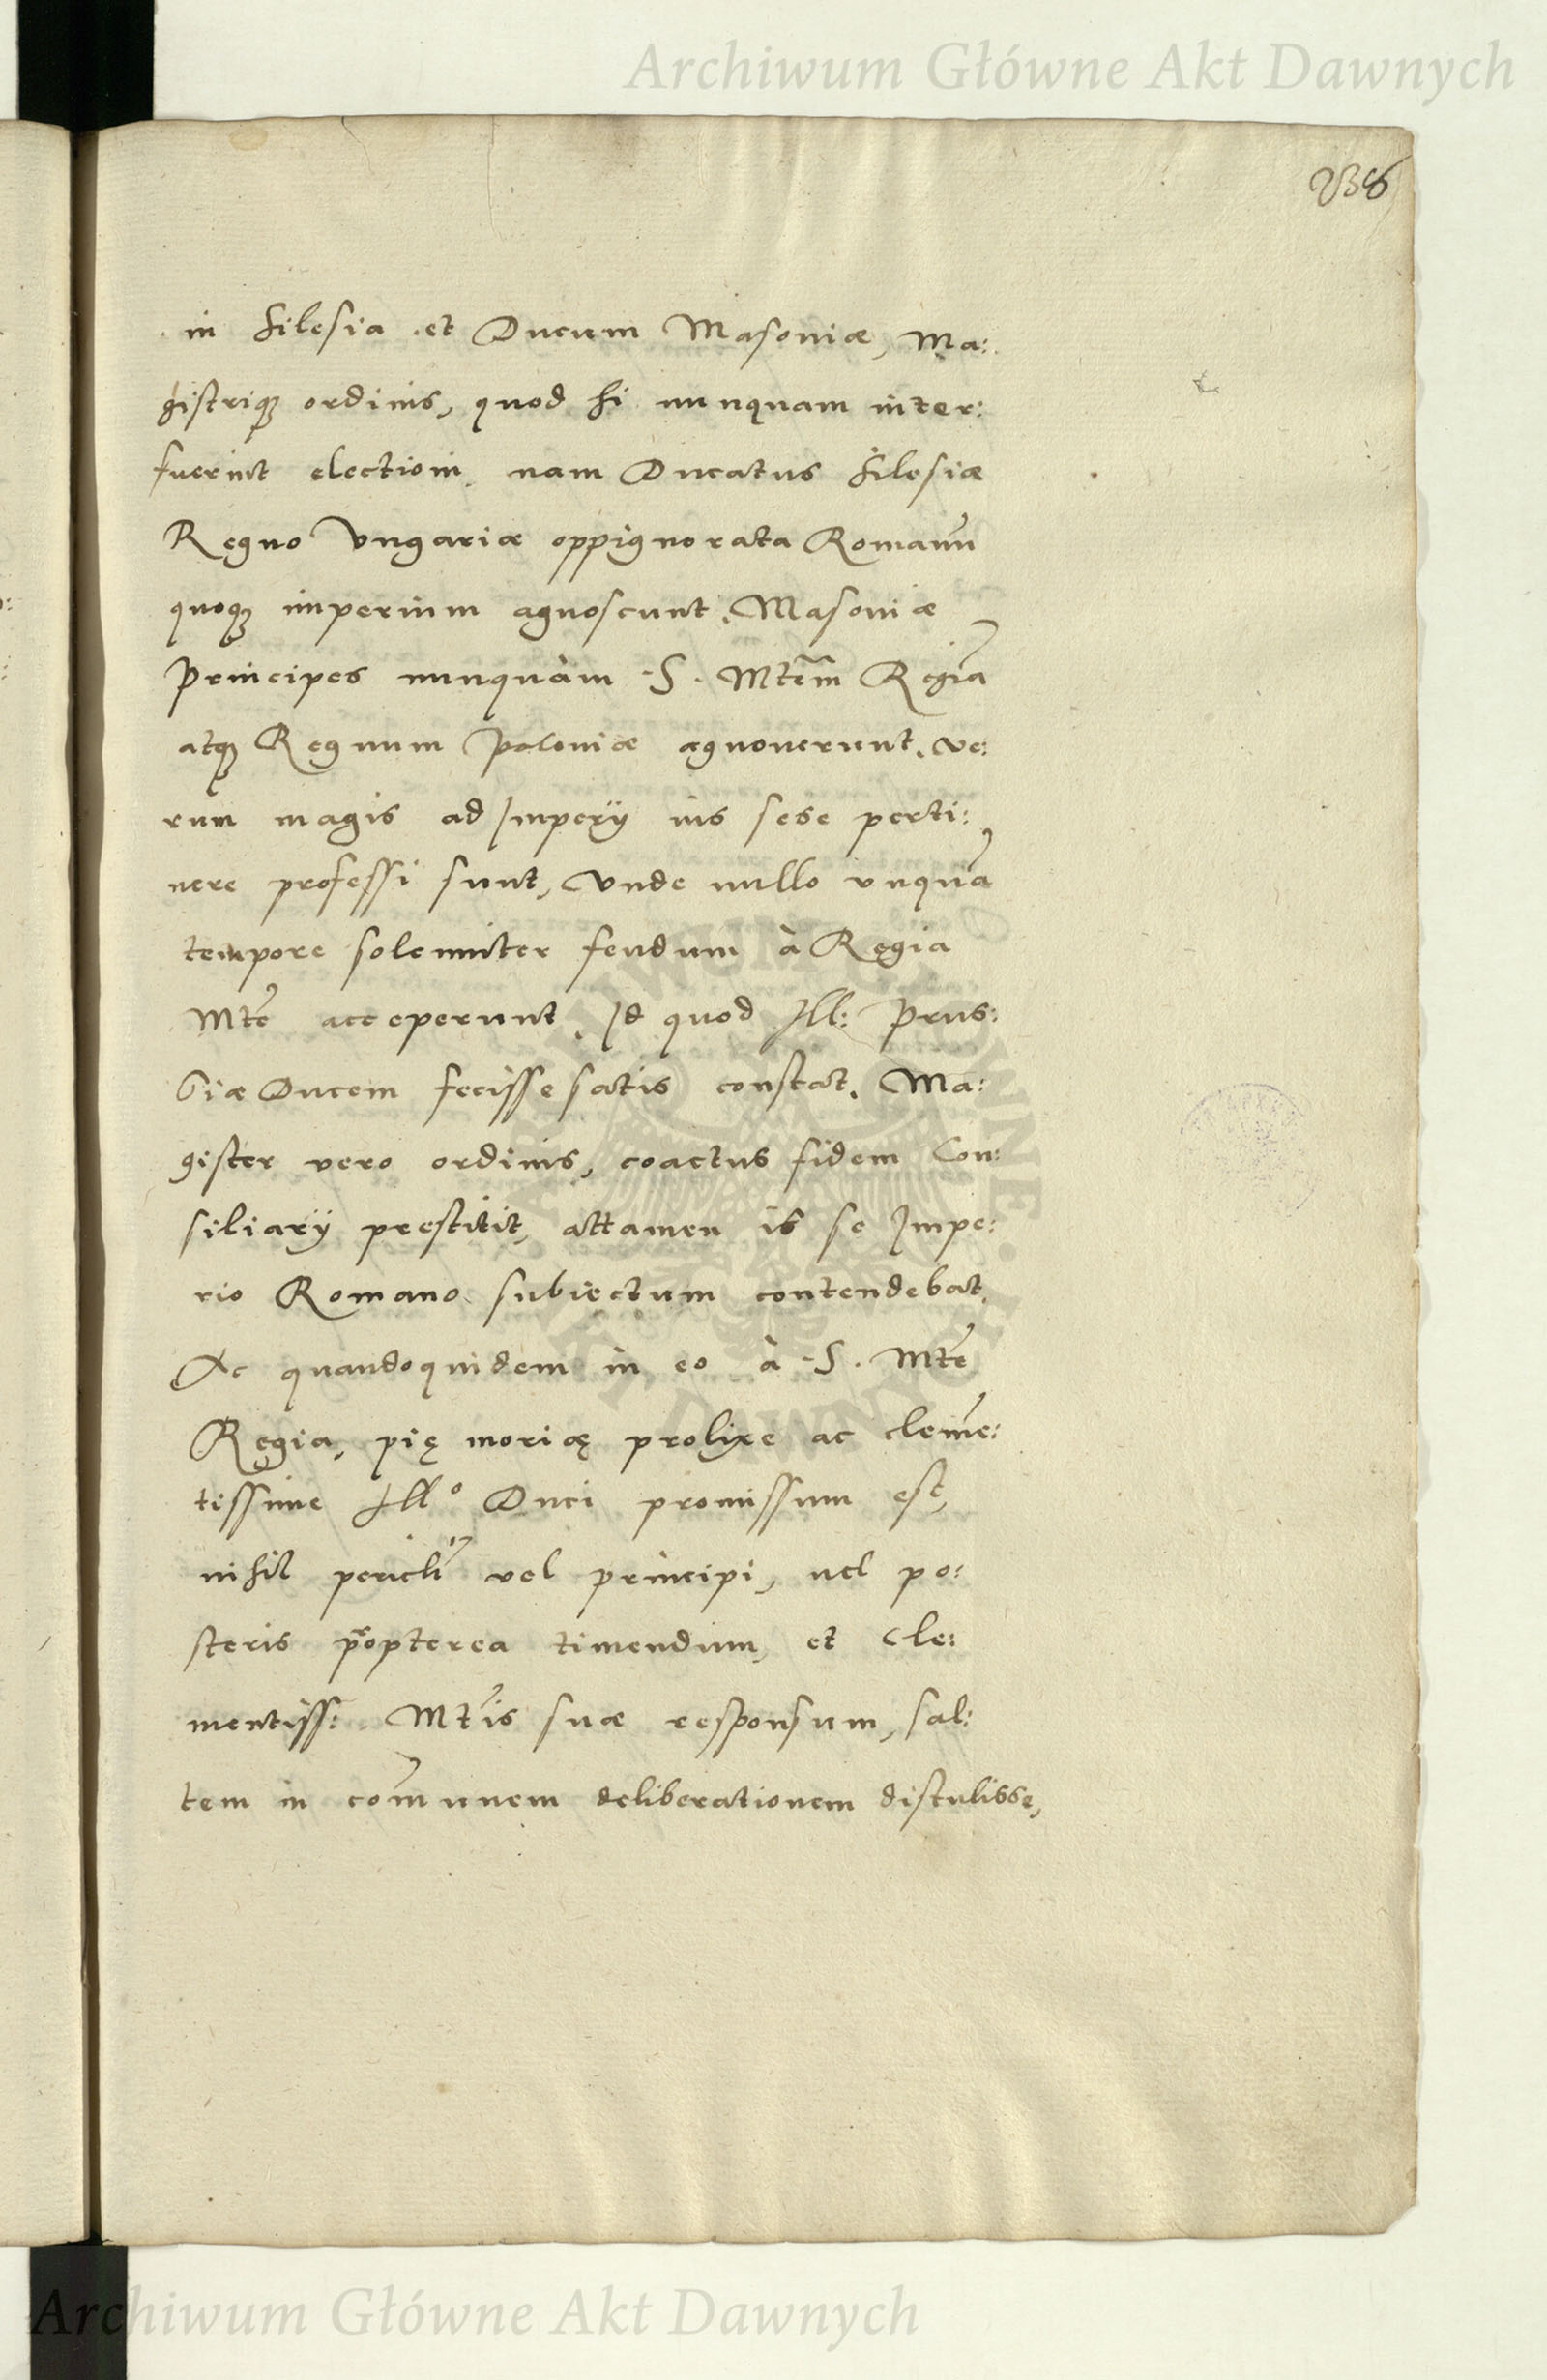 Archiwum Główne Akt Dawnych
238
in Silesia et Ducum Masoniæ, Ma:
gistriq3 ordinis, quod hi nunquam inter:
fuerint electioni, nam Ducatus Silesiæ
Regno Vngariæ oppignorata Romanũ
quoq3 imperium agnoscunt. Masoniæ
Principes nunquàm S. Mtem̃ Regiã
atq3 Regnum Poloniæ agnouerunt. ve:
rum magis ad Imperÿ ius sese perti:
nere professi sunt, Vnde nullo vnquã
tempore solenniter feudum à Regia
Mtẽ acceperunt. Id quod Ill: Prus:
siæ Ducem fecisse satis constat. Ma:
gister vero ordinis, coactus fidem Con:
siliarÿ prestitit, attamen is se Impe:
rio Romano subiectum contendebat.
Ac quandoquidem in eo à S. Mtẽ
Regia, pię moriæ prolixe ac clemẽ:
tissime Illº Duci promissum est,
nihil pericli̇̃ vel principi, uel po:
steris propterea timendum, et Cle:
mentiss: Mtĩs suæ responsum, sal:
tem in com̃unem deliberationem distulisse,
Archiwum Główne Akt Dawnych